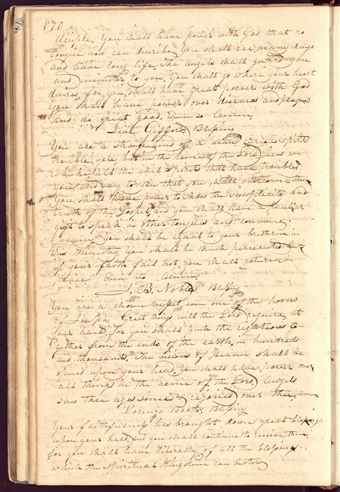 170
people, you shall have power with God, that no
tongue now can describe. You shall see many days
and have long life. The angels shall guard you
and minister to you. You shall go where your heart
desires, for you shall have great power with God
You shall have power over diseases and plagues
and do great good. Even so Amen
Levi Gifford Blessing
You are a
trouble you, but in the name of the Lord
rebuke all the evil spirits that have troubled
you and say to you that you shall
You shall have power to show the simplicity and
truth of the Gospel and you shall have a peculiar
gift to speak in other tongues and convince
many. You shall be equal to your brethren in
the ministry. You shall be much persecuted but
if your faith fail not, you shall return in
peace. Even so Amen
J. B. Nobles Blessing
You are a chosen vessel from one of the horns
of Joseph. Great things will the Lord require at
your hand, for you shall push the righteous to
gether from the ends of the earth, in hundreds
and thousands. The visions of Heaven shall be
opened upon your head, you shall have power over
all things in the name of the Lord. Angels
saw their ages since & rejoiced over them Amen
Lorenzo Booths Blessing
Your faithfulness has brought down great blessings
upon your head and you shall continue to receive them
for you shall have literally all the blessings
which the Spiritual Kingdom can bestow